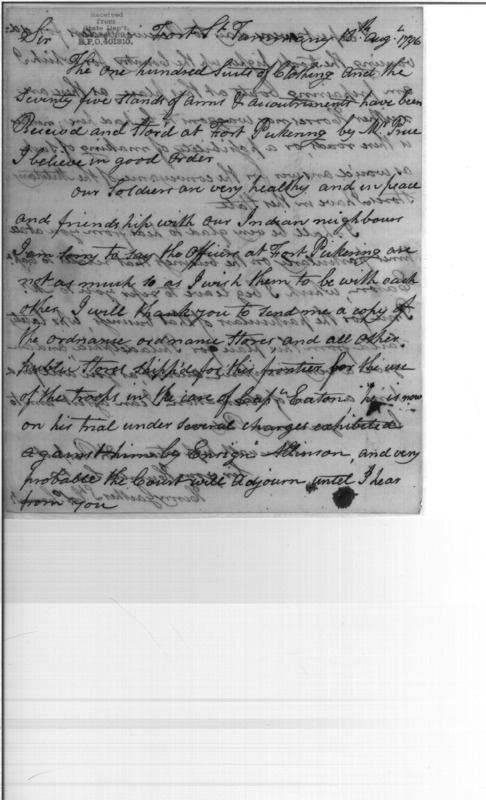 Received
from
State Dep't.
R.P.O. 401810.
Sir Fort St Tammany 12th Augt 1796
The one hundred Suits of Clothing and the
Seventy five Stands of Arms & Accoutriments have been
Receivd and Stord at Fort Pickering by Mr Price
I believe in good Order
Our Soldiers are very healthy and in peace
and friendship with our Indian neighbours
I am sorry to say the Officers at Fort Pickering are
not as much so as I wish them to be with each
other. I will thank you to send me a copy of
the ordnance ordnance Stores and all other
public Stores shipp'd for this frontier for the use
of the troops in the care of Capn Eaton he is now
on his trial under several charges exhibited
against him by Ensign Atkinson, and very
probable the Court will Adjourn until I hear
from you